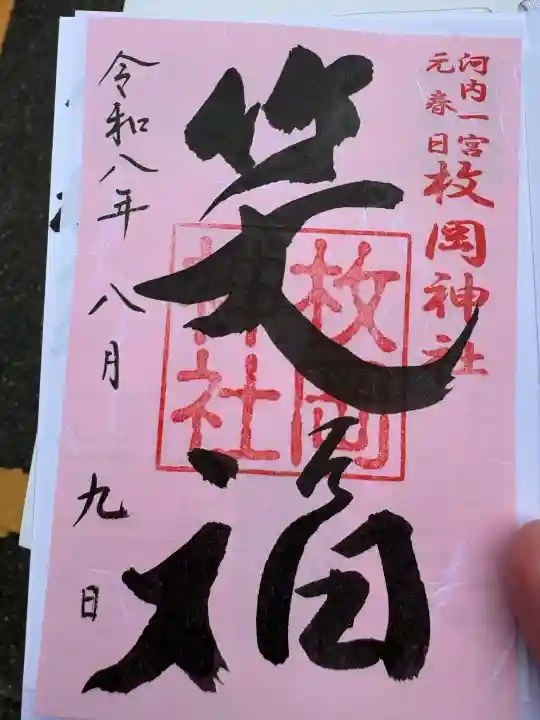 河内一宮
元春日
枚岡神社
笑福
枚岡
神社
令和八年 八月 九日